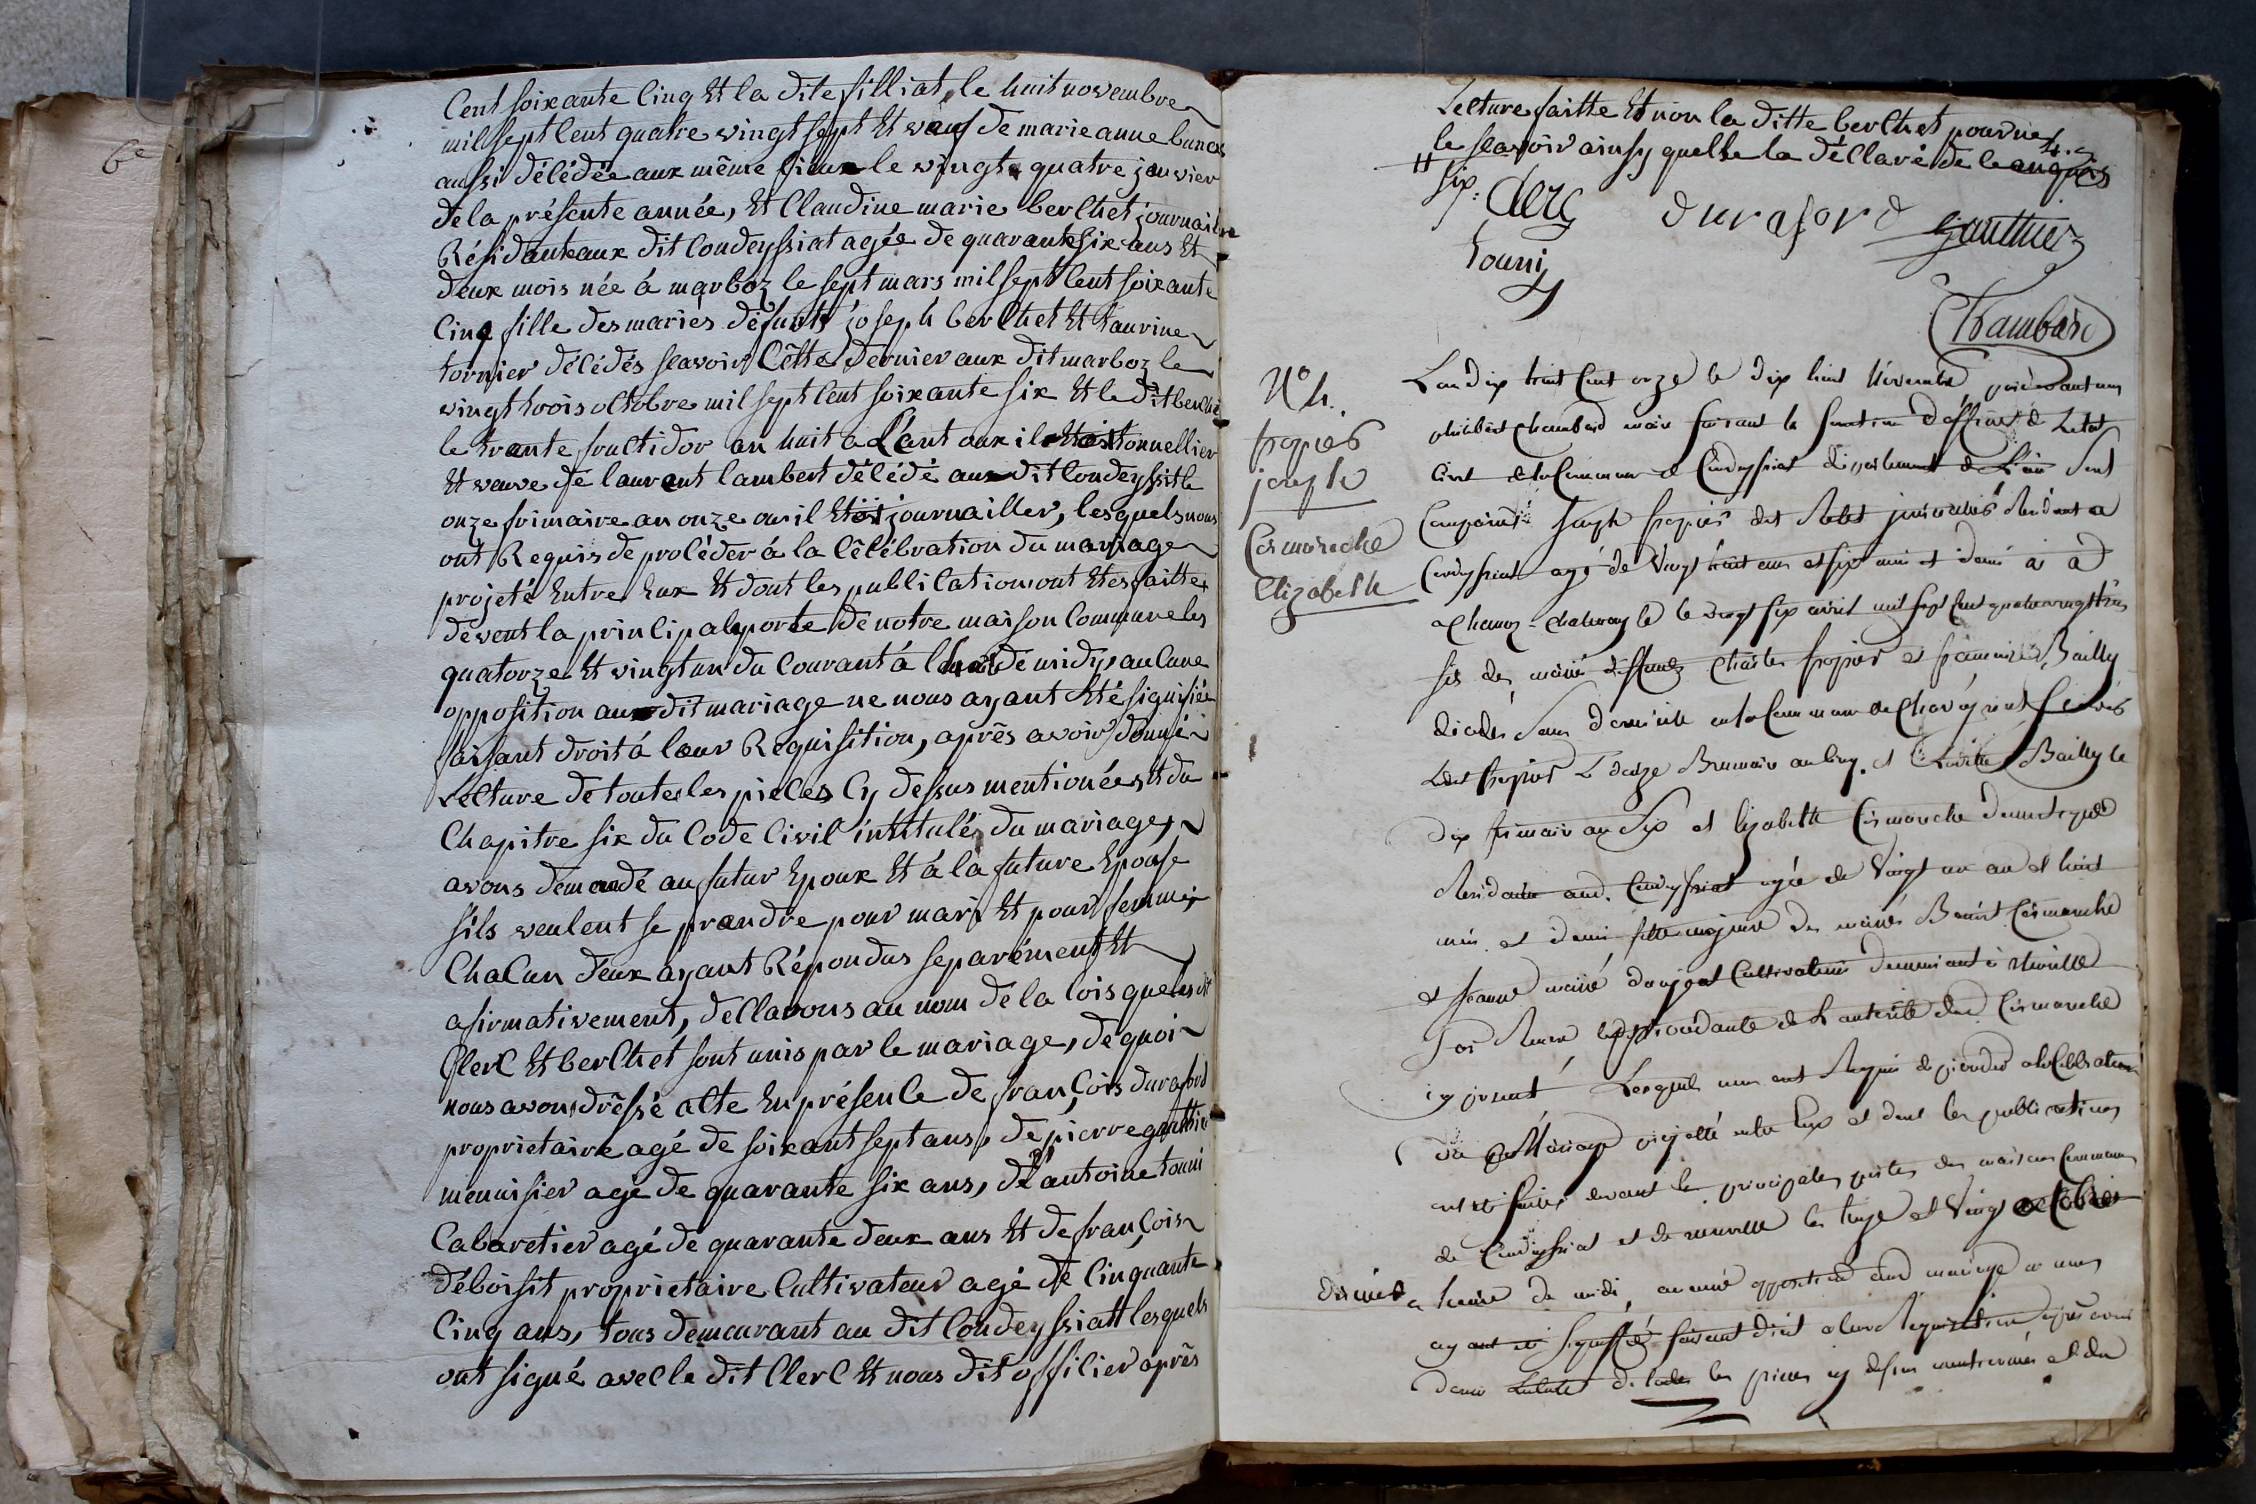 6e
Cent soixante Cinq Et la dite filliat le huit novembre
mil sept Cent quatre vingt sept Et veuf de marie anne
aussi décédée aux même lieux le vingt quatre janvier
de la présente année, Et Claudine marie berChet journalière
Résidante aux dit Condeyssiat agée de quarante six ans Et
deux mois née á marboz le sept mars mil sept Cent soixante
Cinq fille des mariés défunts joseph berChet Et taurine
tornier décédés scavoir Cette dernier aux dit marboz le
vingt trois octobre mil sept Cent soixante six Et le dit berChet
le trante fructidor an huit a L'ant oux il Etoit tonnellier
Et veuve de laurent lambert décédé aux dit Condeyssit le
onze frimaire an onze ou il Etoit journallier, lesquels nous
ont Requis de procéder á la Célébration du mariage
projeté Entre Eux Et dont les publications ont Etes faittes
devent la principale porte de notre maison Commune les
quatorze Et vingt un du Courant á l'heure de midy, auCune
opposition aux dit mariage ne nous ayant Eté signifiée
faisant droit á leur Requisition, après avoir donné
Lecture de toutes les pieces Cy dessus mentionées Et du
Chapitre six du Code Civil intitulés du mariage,
avons demendé au futur Epoux Et á la future Epouse
sils veulent se prandre pour mari Et pour femme,
ChaCun deux ayant Répondus separément Et
afirmativement, deClarons au nom de la Lois que les dit
Clerc Et berChet sont unis par le mariage, de quoi
nous avons dréssé aCte En présence de françois duraford
proprietaire agé de soixant sept ans, de pierre gauthier
menuisier agé de quarante six ans, de antoine touni
Cabaretier agé de quarante deux ans Et de françois
déboisit proprietaire Cultivateur agé de Cinquante
Cinq ans, tous demeurant au dit Condeyssiatt lesquels
ont signé avec le dit Clerc Et nous dit officier après
Lecture faitte Et non la ditte berChet pour ne
le scavoir ainsy quelle la déClaré de Ce enquis
Clerc duraford Gauthier
touni
Chambard
N° 4.
fropier
joseph
Cormareche
Elizabeth
L'an dix huit Cent onze le dix huit Novembre pardevant nous
philibert Chambard maire faisant la fonction d'officier de Letat
Civil de la Commune de Condeyssiat département de L'ain Sont
Comparus Joseph fropier dit journalier Résidant a
Condeyssiat agé de Vingt huit ans et six mois et demi
a le vingt six avril mil sept Cent quatrevingt trois
fils des mariés deffunts Charles fropier et françoise Bailly
décédés domicile en la Commune de
Ledit fropier Brumaire an Cinq, et Bailly le
dix frimaire an Six et Elizabeth Cormareche domestique
Residante aud. Condeyssiat agée de Vingt un an et huit
mois et demi fille majeure des mariés Benoit Cormareche
et Jeanne marie Cultivateurs demeurant á
de L
Cy present Lesquels nous ont Requis de procéder a la Celebration
du Mariage projetté entre Eux et dont les publications
ont été faites devant les principales portes des maisons Communes
de Condeyssiat et de neuville les treze et Vingt octobre
dernier a heure de midi, aucune opposition aud mariage ne nous
ayant été Signiffiée faisant droit a leur Requisition après avoir
donné Lecture de toutes les pieces cy dessus mentionnées et du